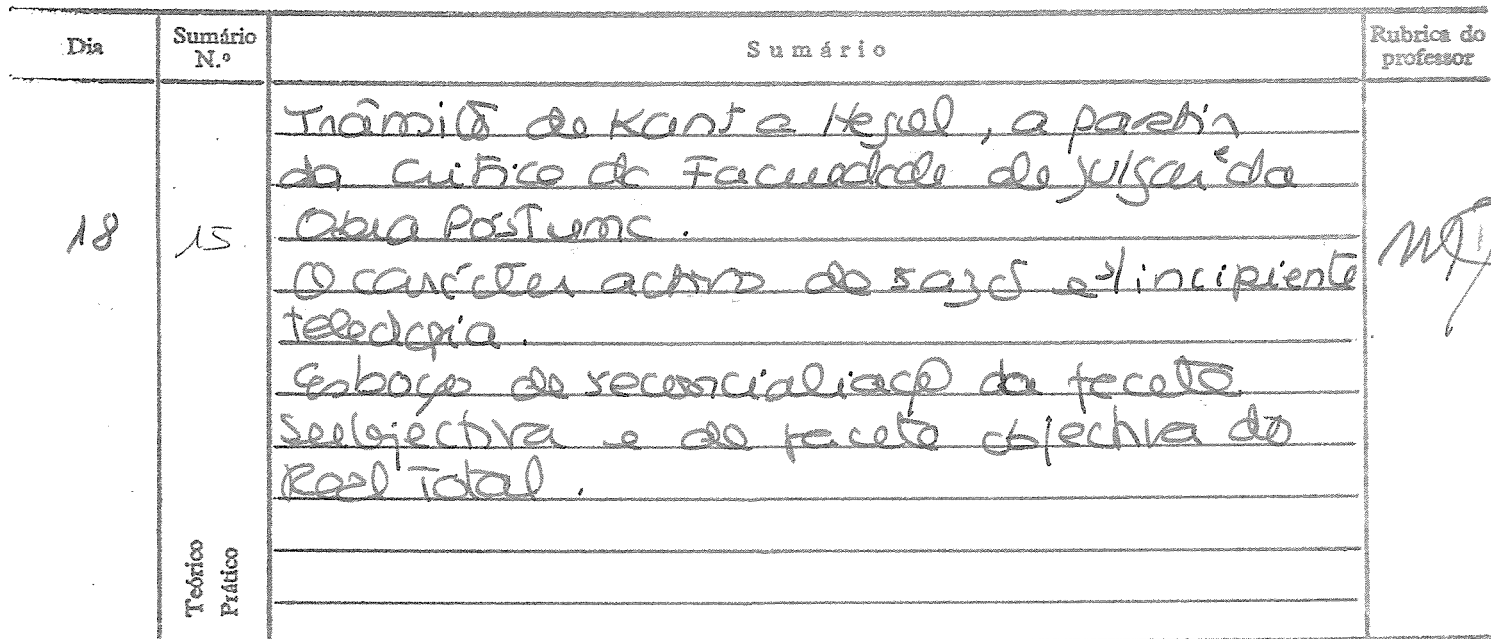 Dia
Sumário N.º
Sumário
Rubrica do professor
18
15
Trânsito de Kant a Hegel, a partir
da Crítica da Faculdade de Julgar e da
Obra Póstuma.
O carácter activo da razão e incipiente
teleologia.
Esboço de reconcialiação da faceta
subjectiva e da faceta objectiva do
Real Total.
Teórico
Prático